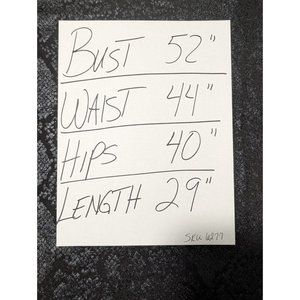 BUST 52"
WAIST 44"
HIPS 40"
LENGTH 29"
SKU 6277